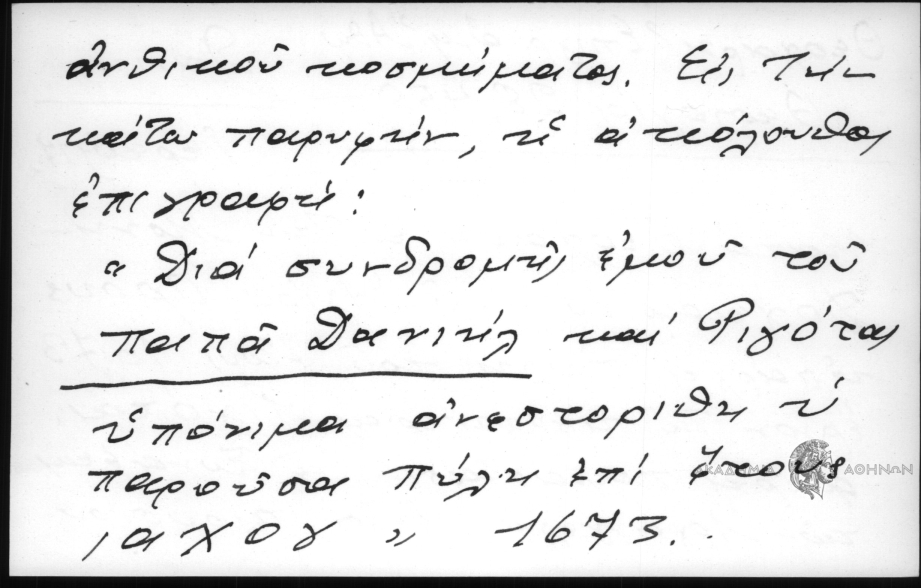 ἀνθικοῦ κοσμήματος. Εἰς τὴν
κάτω παρυφήν, ἡ ἀκόλουθος
ἐπιγραφή:
« Διά συνδρομῆς ἐμοῦ τοῦ
παπᾶ Δανιήλ καί Ριγότας
ὑπόνιμα ἀνεστορίθη ὑ
παροῦσα πύλη ἐπί ἔτους
͵αχογ » 1673.
ΑΚΑΔΗΜΙΑ ΑΘΗΝΩΝ